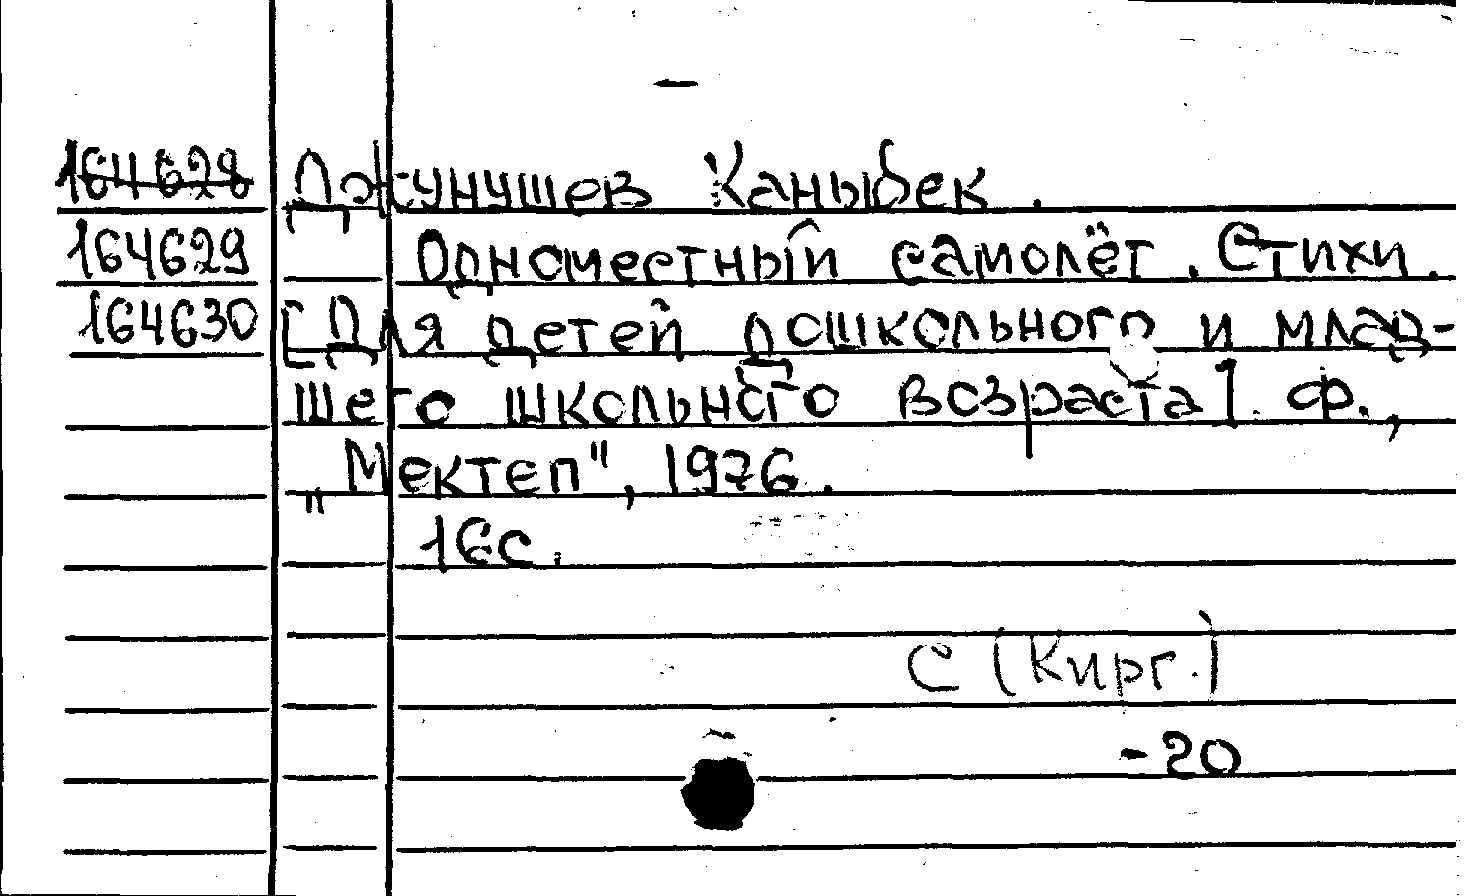 164628 Джунушев Каныбек.
164629 Одноместный самолёт. Стихи.
164630 [Для детей дошкольного и млад-
шего школьного возраста]. Ф.,
„Мектеп", 1976.
16с.
С (Кирг.)
-20